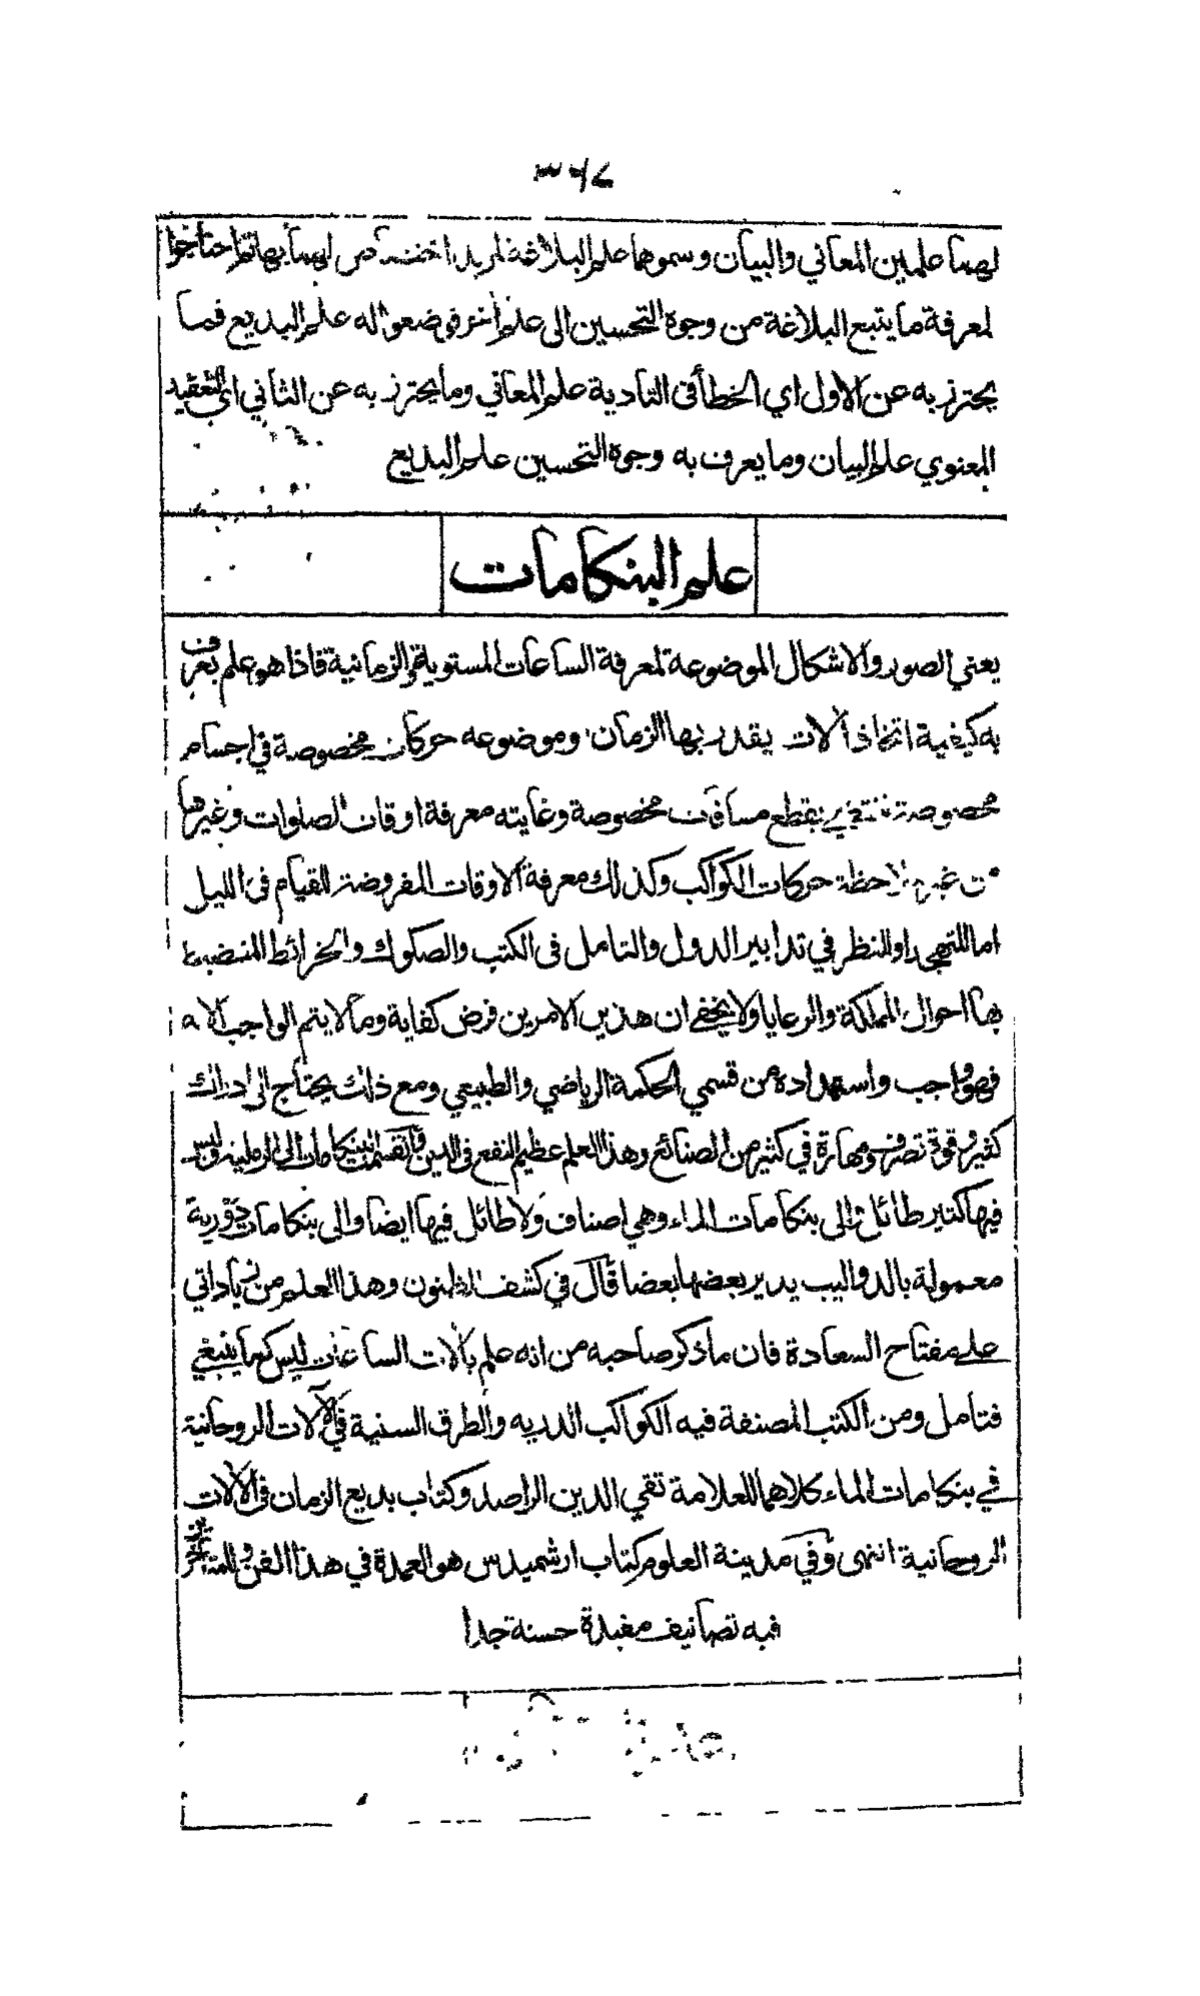 ٣٤٨
لهما علمين المعاني والبيان وسموهما علم البلاغة لمزيد اختصاص لهما بها ثم احتاجوا
لمعرفة ما يتبع البلاغة من وجوه التحسين الى علم أخر فوضعوا له علم البديع فما
يحترز به عن الاول اي الخطأ فى التادية علم المعاني وما يحترز به عن الثاني اى التعقيد
المعنوي علم البيان وما يعرف به وجوه التحسين علم البديع
علم البنكامات
يعني الصور والاشكال الموضوعة لمعرفة الساعات المستوية والزمانية فاذا هو علم يعرف
به كيفية اتخاذ ألات يقدر بها الزمان وموضوعه حركات مخصوصة في اجسام
مخصوصة تنقضي بقطع مسافات مخصوصة وغايته معرفة اوقات الصلوات وغيرها
من غير ملاحظة حركات الكواكب وكذلك معرفة الاوقات المفروضة للقيام فى الليل
اما للتهجد او للنظر في تدابير الدول والتامل فى الكتب والصكوك والخرائط المنضبط
بها احوال المملكة والرعايا ولا يخفى ان هذين الامرين فرض كفاية وما لا يتم الواجب الا به
فهو واجب واستمداده من قسمي الحكمة الرياضي والطبيعي ومع ذلك يحتاج الى ادراك
كثير وقوة تصرف ومهارة في كثير من الصنائع وهذا العلم عظيم النفع فى الدين وانقسمت البنكامات الى الرملية وليس
فيها كثير طائل والى بنكامات الماء وهي اصناف ولا طائل فيها ايضا والى بنكامات دورية
معمولة بالدواليب يدير بعضها بعضا قال في كشف الظنون وهذا العلم من زياداتي
على مفتاح السعادة فان ما ذكر صاحبه من انه علم بألات الساعات ليس كما ينبغي
فتامل ومن الكتب المصنفة فيه الكواكب الدرية والطرق السنية في الآلات الروحانية
في بنكامات الماء كلاهما للعلامة تقي الدين الراصد وكتاب بديع الزمان فى الألات
الروحانية انتهى وفي مدينة العلوم كتاب ارشميدس هو العمدة في هذا الفن وللمتاخرين
فيه تصانيف مفيدة حسنة جدا